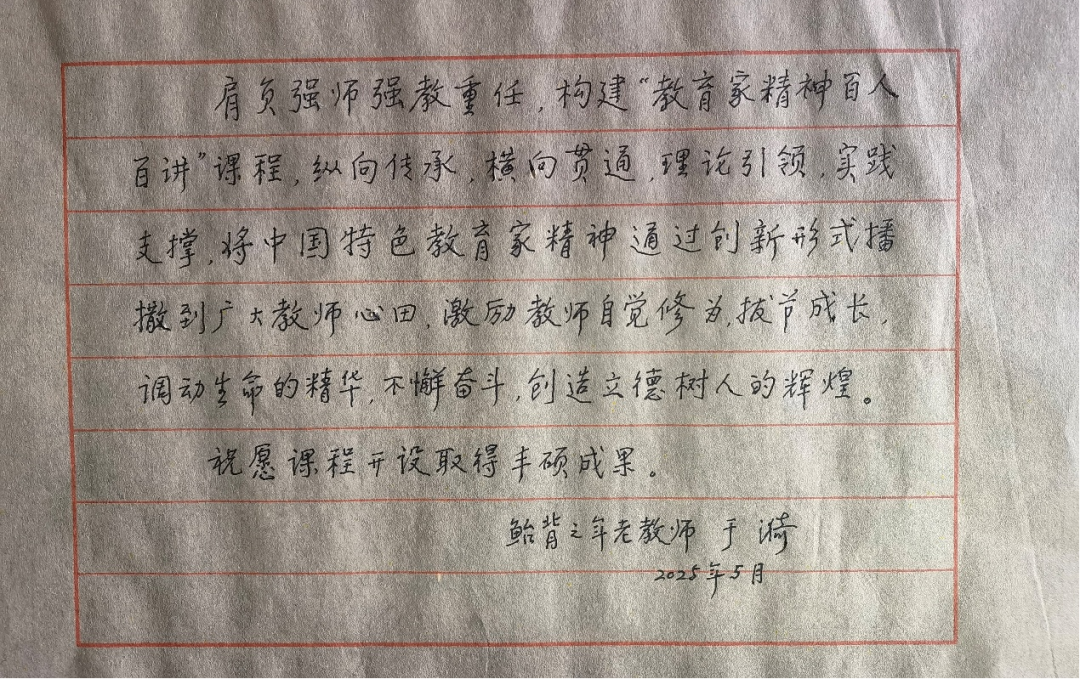 肩负强师强教重任，构建“教育家精神百人
百讲”课程，纵向传承，横向贯通，理论引领，实践
支撑，将中国特色教育家精神通过创新形式播
撒到广大教师心田，激励教师自觉修为，拔节成长，
调动生命的精华，不懈奋斗，创造立德树人的辉煌。
祝愿课程开设取得丰硕成果。
鲐背之年老教师 于漪
2025年5月